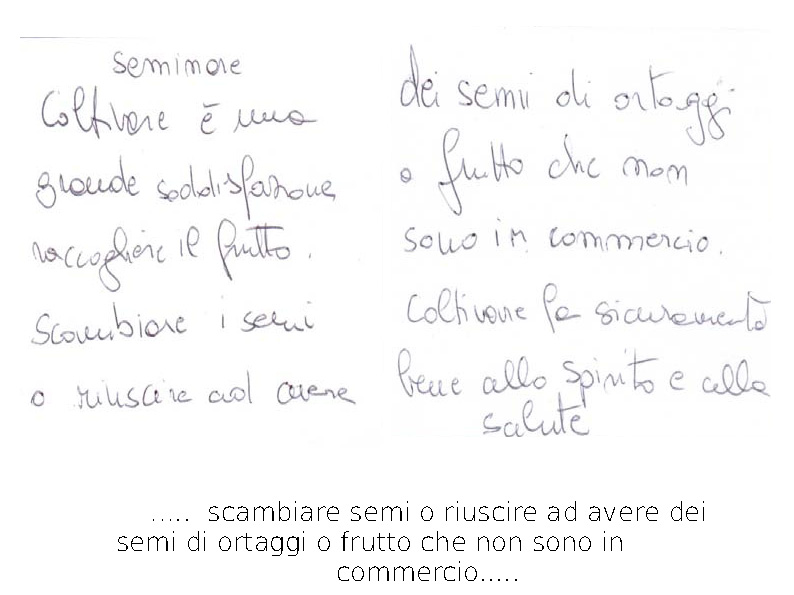 seminare
Coltivare è una
grande soddisfazione
raccogliere il frutto.
Scambiare i semi
o riuscire ad avere
dei semi di ortaggi
o frutto che non
sono in commercio.
Coltivare fa sicuramente
bene allo spirito e alla
salute
..... scambiare semi o riuscire ad avere dei
semi di ortaggi o frutto che non sono in
commercio.....